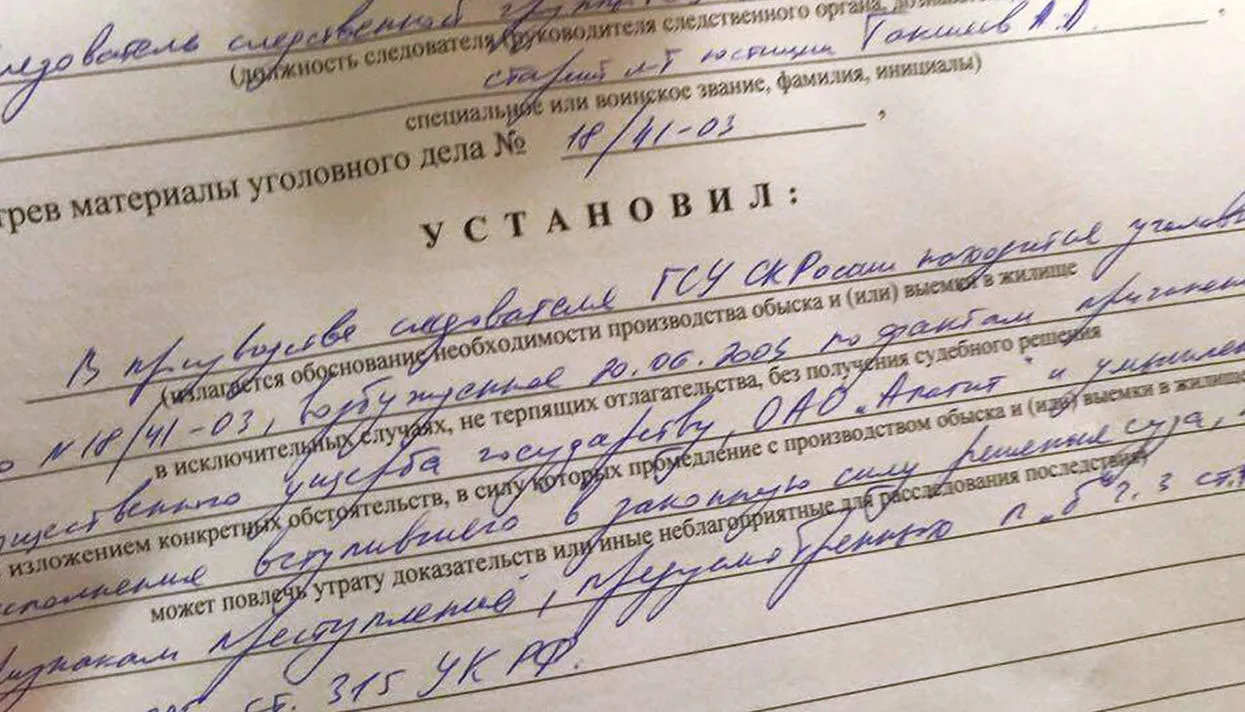 следователь следственной группы
(должность следователя (руководителя следственного органа,
старший л-т юстиции А.А.
специальное или воинское звание, фамилия, инициалы)
трев материалы уголовного дела № 18/41-03,
УСТАНОВИЛ:
В производстве следователя ГСУ СК России находится уголовн
(излагается обоснование необходимости производства обыска и (или) выемки в жилище
о N18/41-03, возбужденное 20.06.2003 по фактам причинени
в исключительных случаях, не терпящих отлагательства, без получения судебного решения
ущественного ущерба государству, ОАО „Апатит“ и умышлен
с изложением конкретных обстоятельств, в силу которых промедление с производством обыска и (или) выемки в жилище
исполнения вступившего в законную силу решения суда,
может повлечь утрату доказательств или иные неблагоприятные для расследования последствия)
признакам преступлений, предусмотренных п. „б“ ч. 3 ст.
ст. 315 УК РФ.